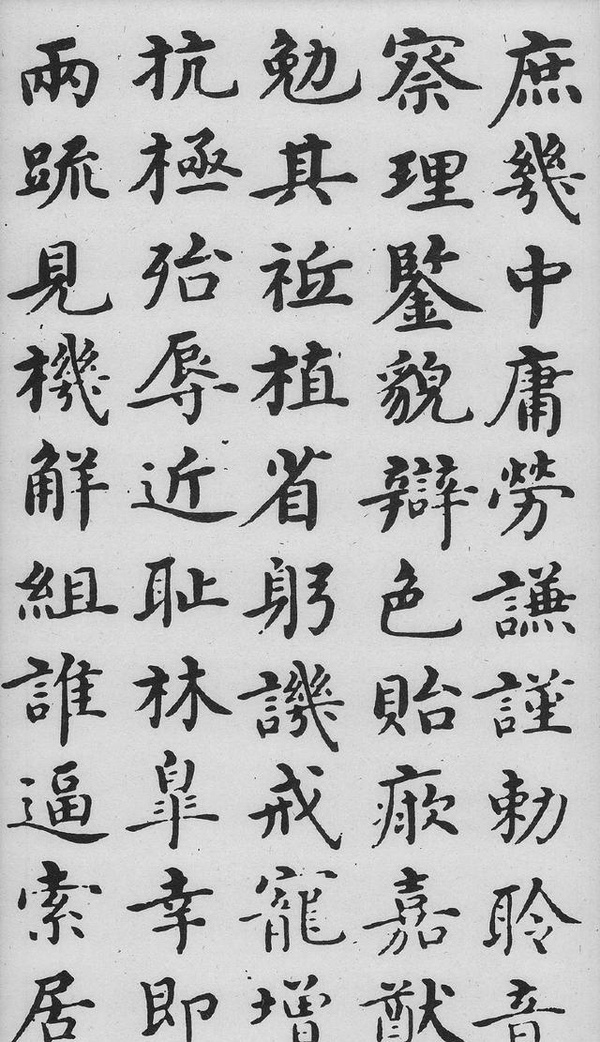 庶幾中庸勞謙謹勅聆音
察理鑒貌辯色貽厥嘉猷
勉其祗植省躬譏戒寵增
抗極殆辱近耻林皐幸即
兩疏見機解組誰逼索居